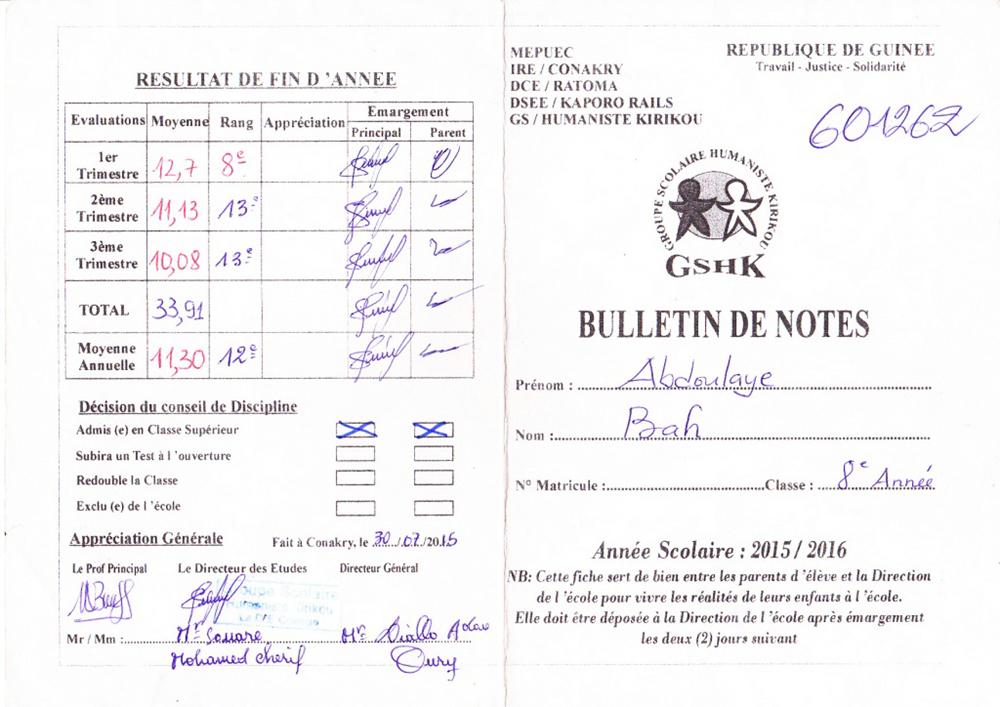 RESULTAT DE FIN D 'ANNEE
Evaluations Moyenne Rang Appréciation Emargement
Principal Parent
1er Trimestre 12,7 8e
2ème Trimestre 11,13 13e
3ème Trimestre 10,08 13e
TOTAL 33,91
Moyenne Annuelle 11,30 12e
Décision du conseil de Discipline
Admis (e) en Classe Supérieur
Subira un Test à l 'ouverture
Redouble la Classe
Exclu (e) de l 'école
Appréciation Générale
Fait à Conakry, le 30/07/2015
Le Prof Principal Le Directeur des Etudes Directeur Général
Mr / Mm : Mr Souare Mr Diallo
Mohamed Cherif Oury
MEPUEC
IRE / CONAKRY
DCE / RATOMA
DSEE / KAPORO RAILS
GS / HUMANISTE KIRIKOU
REPUBLIQUE DE GUINEE
Travail - Justice - Solidarité
601262
GROUPE SCOLAIRE HUMANISTE KIRIKOU
GSHK
BULLETIN DE NOTES
Prénom : Abdoulaye
Nom : Bah
N° Matricule : Classe : 8e Année
Année Scolaire : 2015 / 2016
NB: Cette fiche sert de bien entre les parents d 'élève et la Direction
de l 'école pour vivre les réalités de leurs enfants à l 'école.
Elle doit être déposée à la Direction de l 'école après émargement
les deux (2) jours suivant